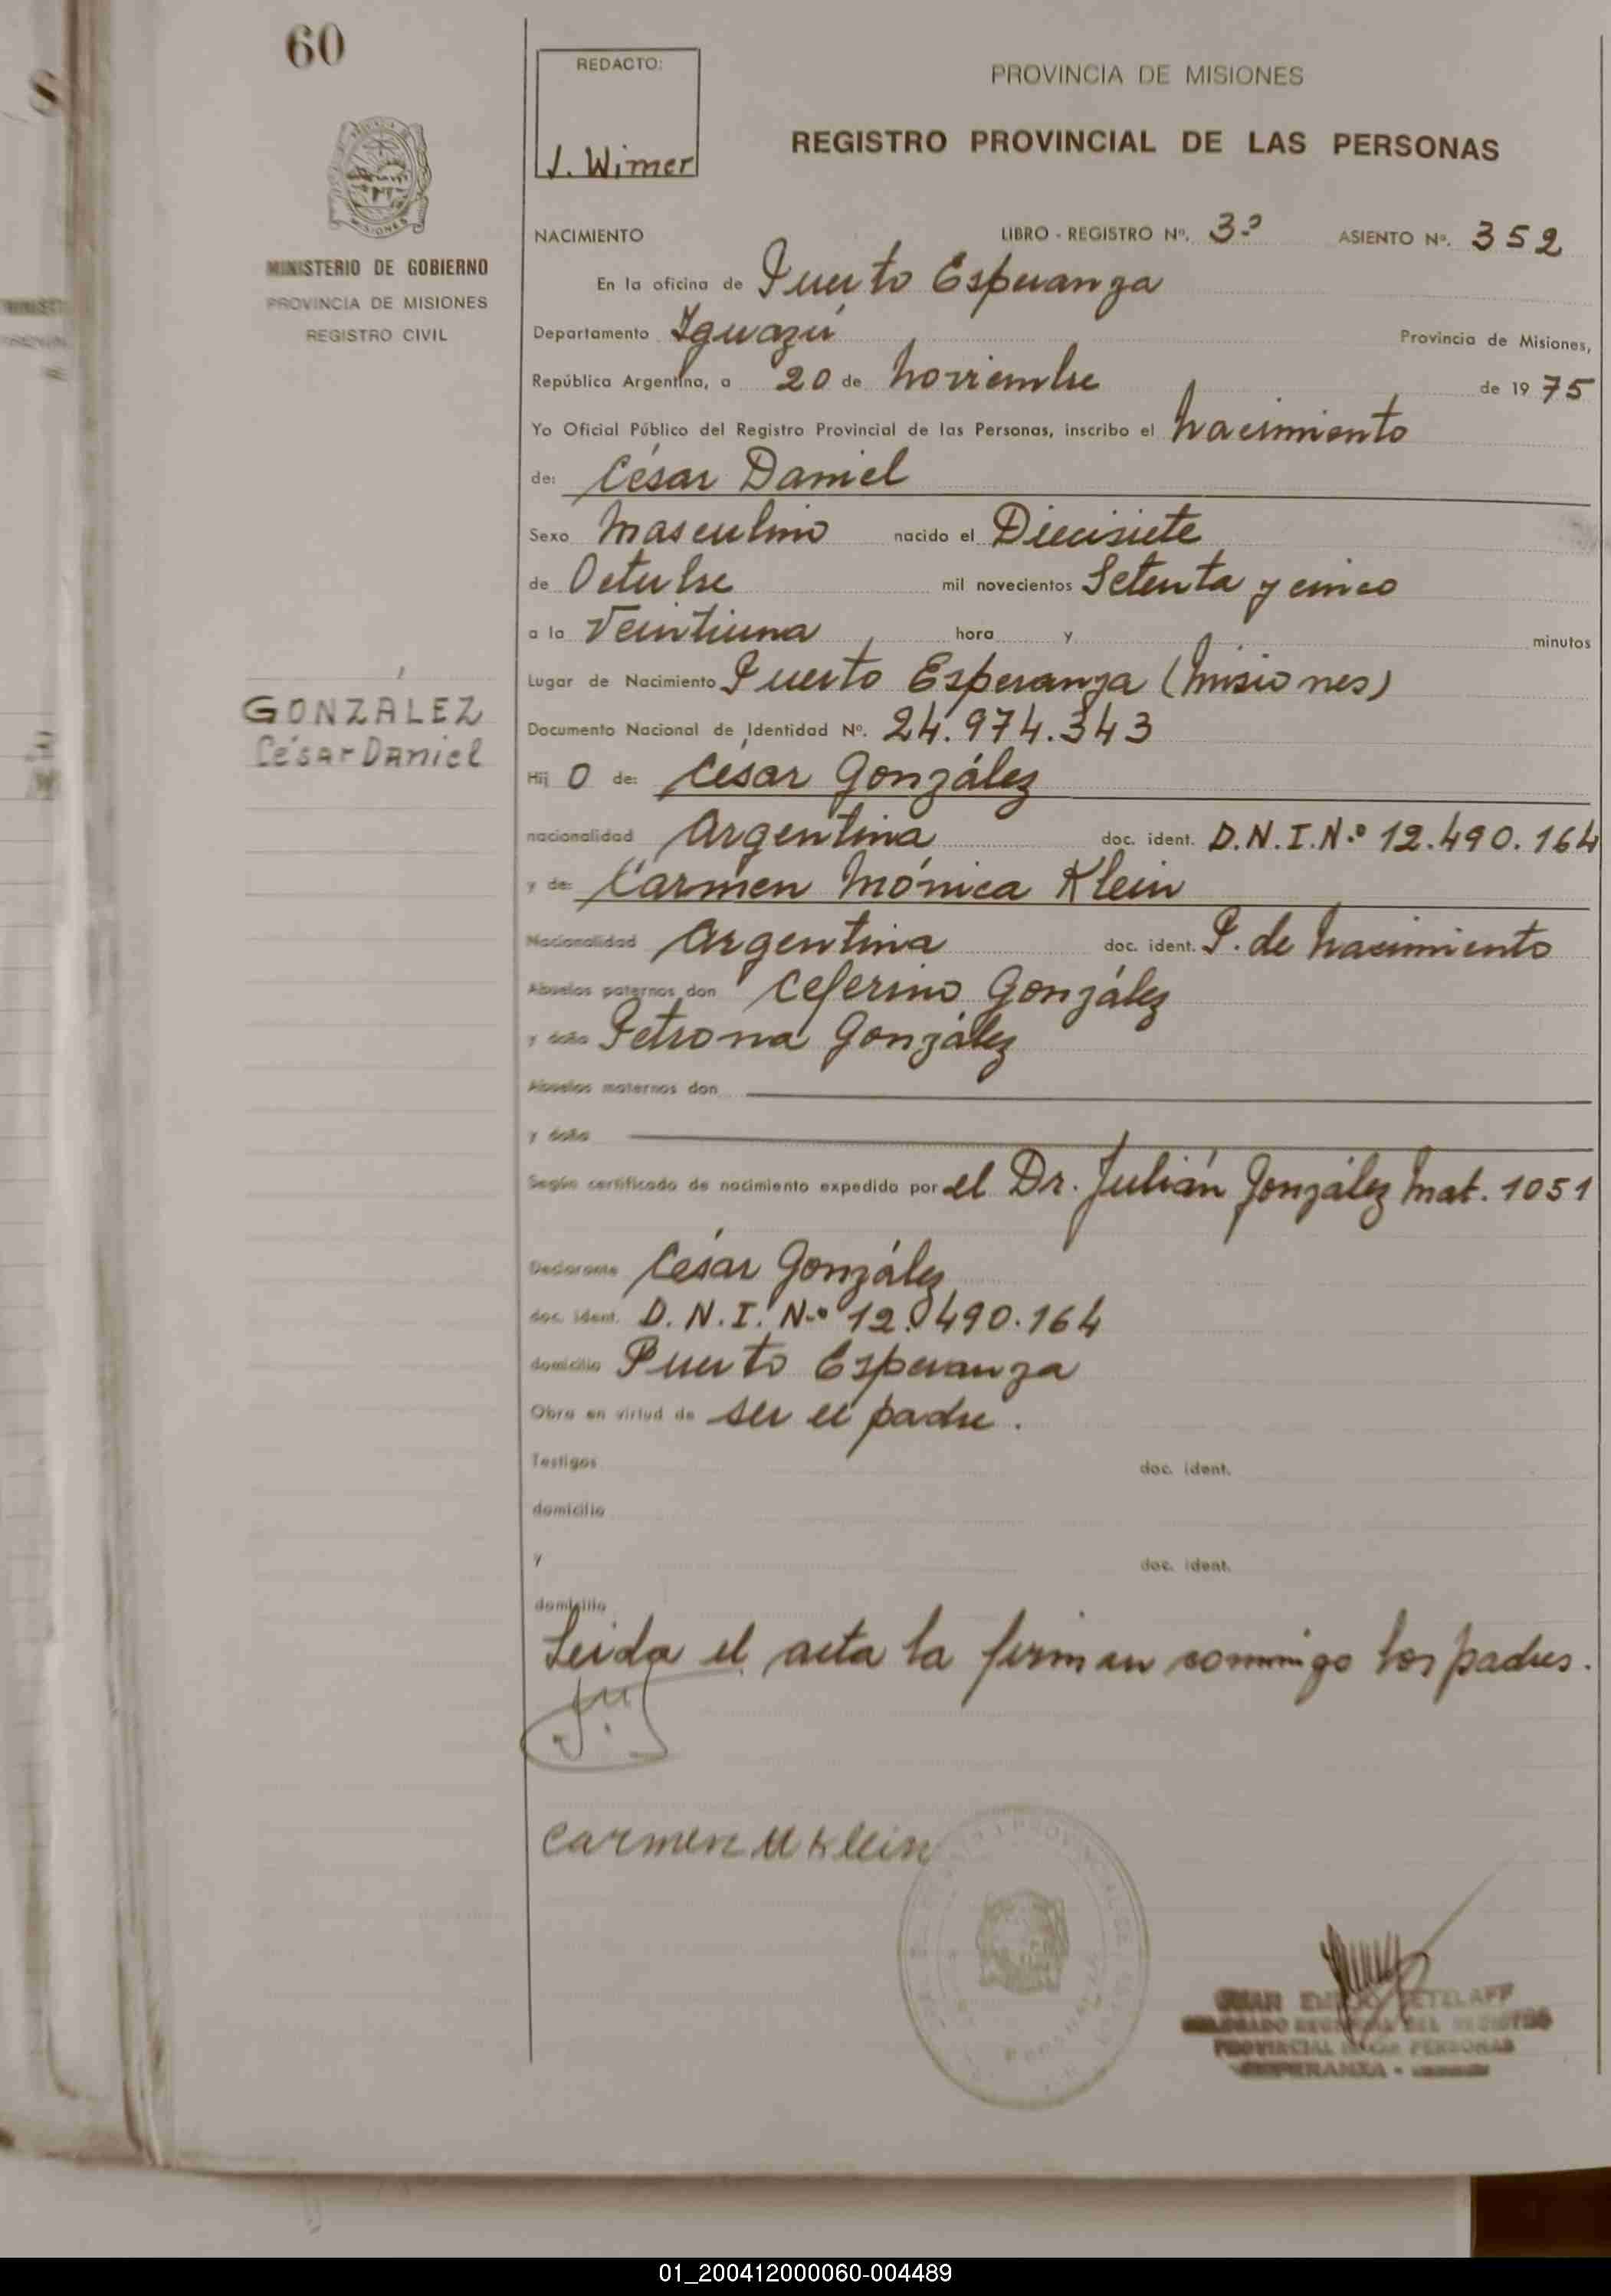 60
REDACTO:
J. Wimer
PROVINCIA DE MISIONES
REGISTRO PROVINCIAL DE LAS PERSONAS
MINISTERIO DE GOBIERNO
PROVINCIA DE MISIONES
REGISTRO CIVIL
NACIMIENTO LIBRO - REGISTRO Nº. 3º ASIENTO Nº. 352
En la oficina de Puerto Esperanza
Departamento Iguazú Provincia de Misiones,
República Argentina, a 20 de Noviembre de 1975
Yo Oficial Público del Registro Provincial de las Personas, inscribo el Nacimiento
de: César Daniel
Sexo Masculino nacido el Diecisiete
de Octubre mil novecientos Setenta y cinco
a la Veintiuna hora y minutos
Lugar de Nacimiento Puerto Esperanza (Misiones)
GONZÁLEZ
César Daniel
Documento Nacional de Identidad Nº. 24.974.343
Hij o de: César González
nacionalidad Argentina doc. ident. D.N.I.Nº 12.490.164
y de: Carmen Mónica Klein
Nacionalidad Argentina doc. ident. P. de Nacimiento
Abuelos paternos don Ceferino González
y doña Petrona González
Abuelos maternos don
y doña
Según certificado de nacimiento expedido por el Dr. Julián González Mat. 1051
Declarante César González
doc. ident. D.N.I. Nº 12.490.164
domicilio Puerto Esperanza
Obra en virtud de ser el padre.
Testigos doc. ident.
domicilio
y doc. ident.
domicilio
Leida el acta la firman conmigo los padres.
Carmen M Klein
PROVINCIAL PERSONAS
01_200412000060-004489